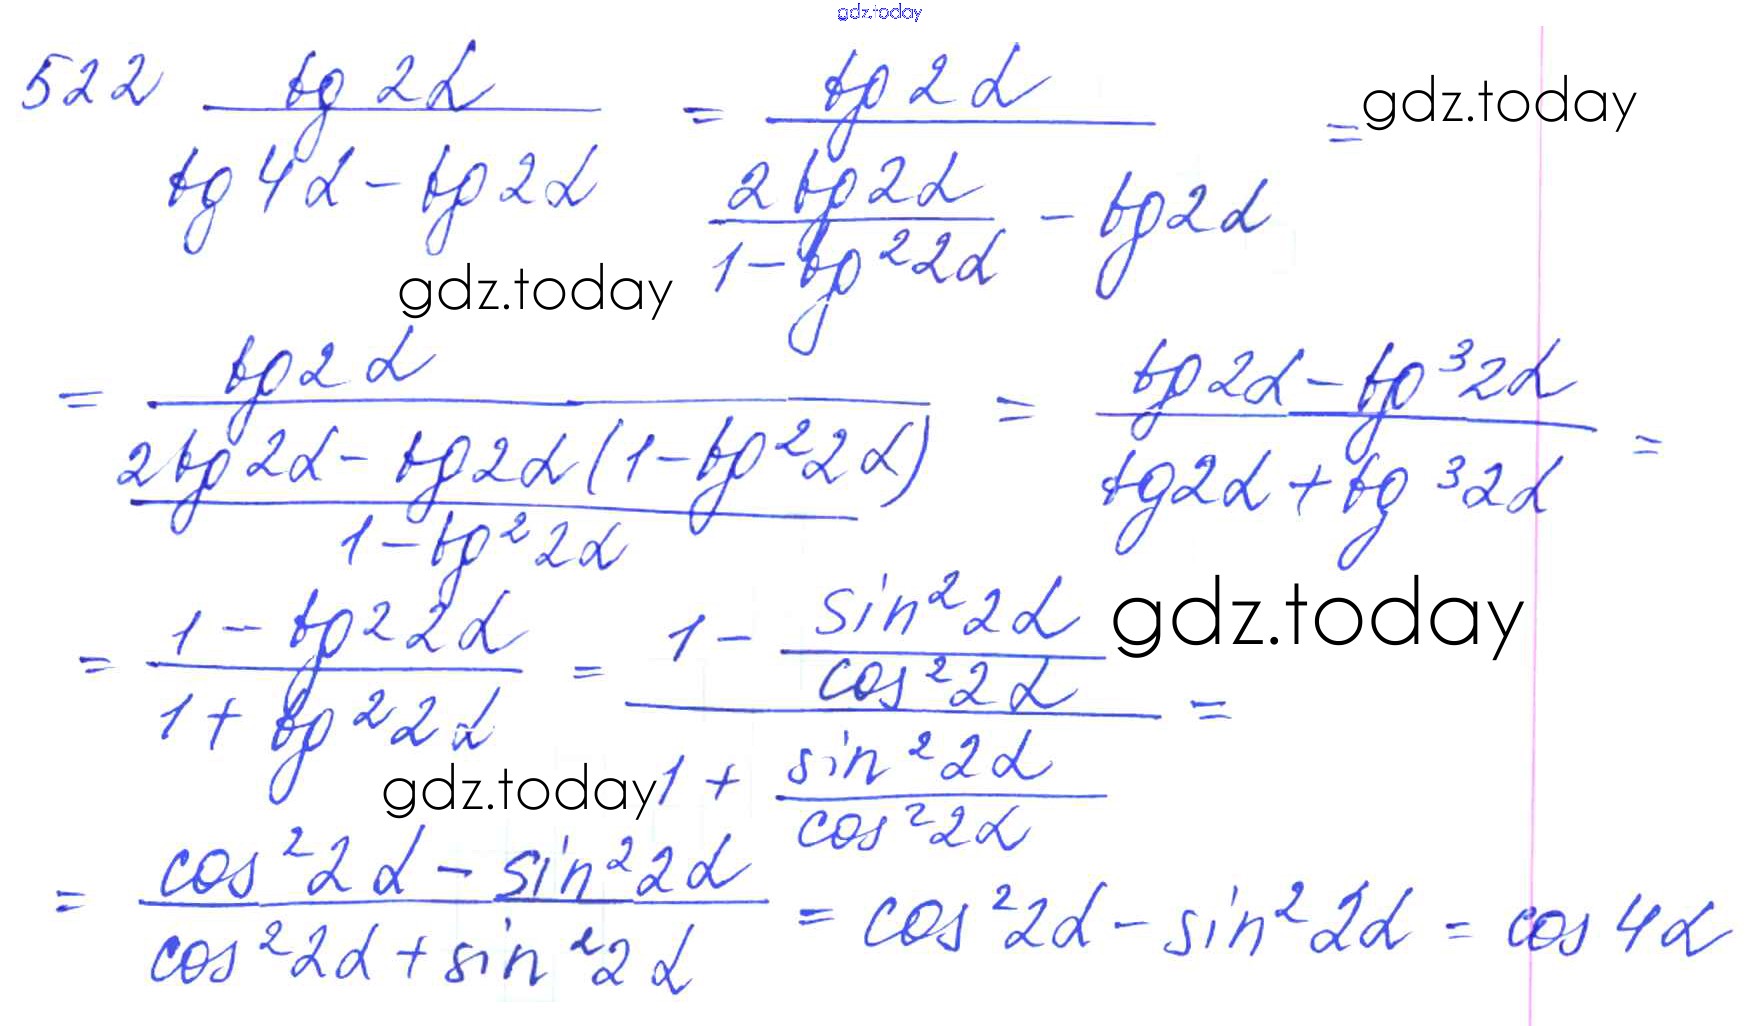 gdz.today
522 tg 2α / (tg 4α - tg 2α) = tg 2α / (2 tg 2α / (1 - tg² 2α) - tg 2α) = gdz.today
gdz.today
= tg 2α / ((2 tg 2α - tg 2α (1 - tg² 2α)) / (1 - tg² 2α)) = (tg 2α - tg³ 2α) / (tg 2α + tg³ 2α) =
= (1 - tg² 2α) / (1 + tg² 2α) = (1 - sin² 2α / cos² 2α) / (1 + sin² 2α / cos² 2α) =
gdz.today
gdz.today
= (cos² 2α - sin² 2α) / (cos² 2α + sin² 2α) = cos² 2α - sin² 2α = cos 4α